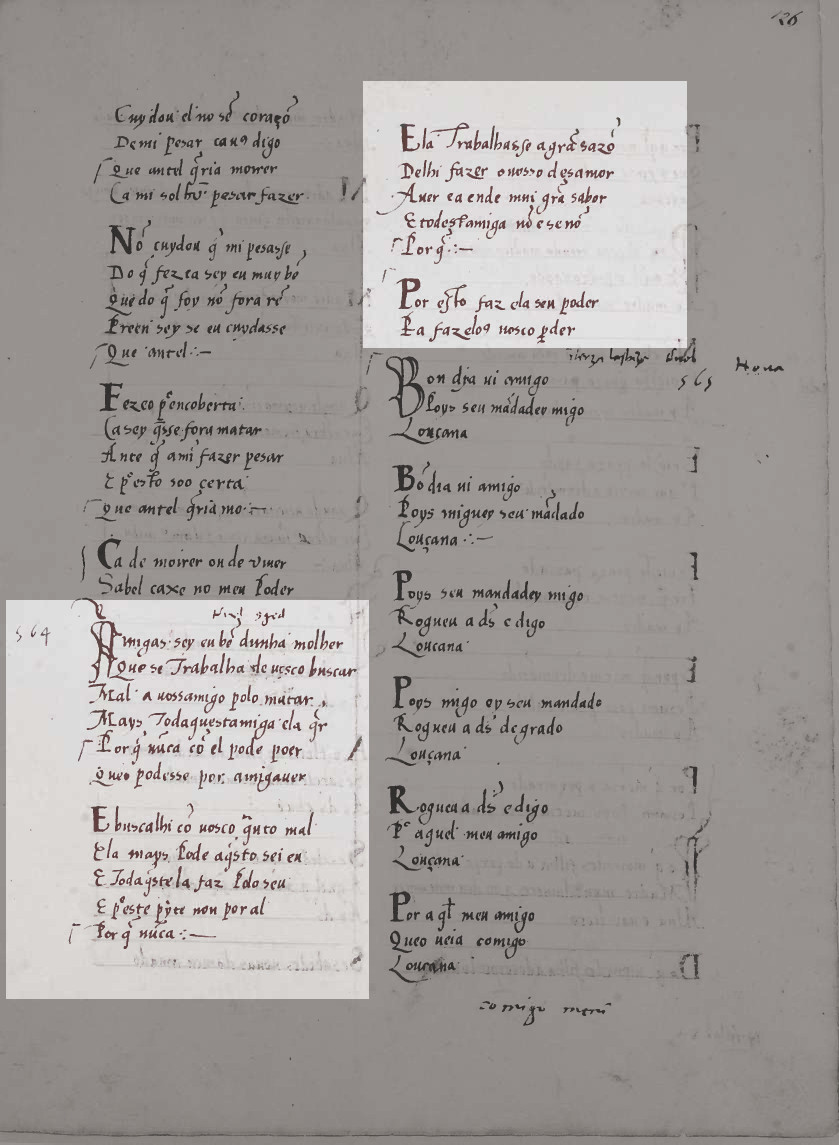 126
Cuydou el no seu coraçõ
De mi pesar ca uꝯ digo
Que antel q̃ria moirer
Ca mi sol hũ pesar fazer
Nõ cuydou q̃ mi pesasse
Do q̃ fez ca sey eu muy bẽ
Que do q̃ foy nõ fora rẽ
Preen sey se eu cuydasse
Que antel :—
Fezeo p̃encoberta
Ca sey q̃sse fora matar
Ante q̃ ami fazer pesar
E p̃esto soo çerta
Que antel q̃ria mo :—
Ca de moirer ou de viuer
Sabel caxe no meu poder
564
Amigas sey eu bẽ dunha molher
Que se Trabalha de uosco buscar
Mal a uossamigo polo matar
Mays Todaquestamiga ela q̃r
Por q̃ nũca cõ el pode poer
Queo podesse por amigauer
E buscalhi cõ uosco q̃nto mal
Ela mays pode aq̃sto sei eu
E Todaq̃stela faz p̃do seu
E p̃este p̃yte non por al
Por q̃ nũca :—
Ela Trabalhasse a grã sazõ
Delhi fazer o uosso desamor
Auer ea ende mui grã sabor
E todestamiga nõ e se nõ
Por q̃ :—
Por esto faz ela seu poder
Pa fazeloꝯ uosco p̃der
565
Bon dia ui amigo
Poys seu mãdadey migo
Louçana
Bõ dia ui amigo
Poys miguey seu mãdado
Louçana :—
Poys seu mandadey migo
Rogueu a ds̃ e digo
Louçana
Poys migo ey seu mandado
Rogueu a ds̃ de grado
Louçana
Rogueu a ds̃ e digo
P̃ aquel meu amigo
Louçana
Por aq̃l meu amigo
Queo ueia comigo
Louçana
comigo